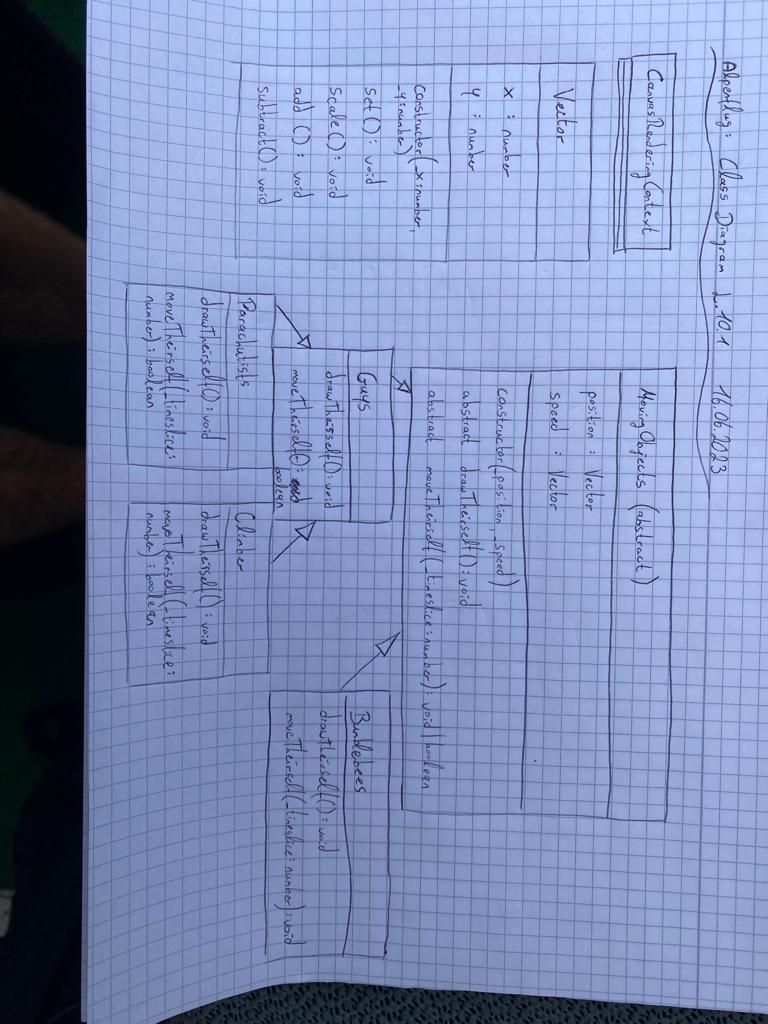 Alpenflug: Class Diagram L10.1 16.06.2023
CanvasRenderingContext
Vector
x : number
y : number
constructor(_x:number,
_y:number)
set() : void
scale() : void
add () : void
subtract() : void
MovingObjects (abstract)
position : Vector
speed : Vector
constructor(_position, _speed)
abstract drawTheirself() : void
abstract moveTheirself(_timeslice:number) : void | boolean
Guys
drawTheirself() : void
moveTheirself() :
boolean
Parachutists
drawTheirself() : void
moveTheirself(_timeslice:
number) : boolean
Climber
drawTheirself() : void
moveTheirself(_timeslice:
number) : boolean
drawTheirself() : void
moveTheirself(_timeslice:number) : void